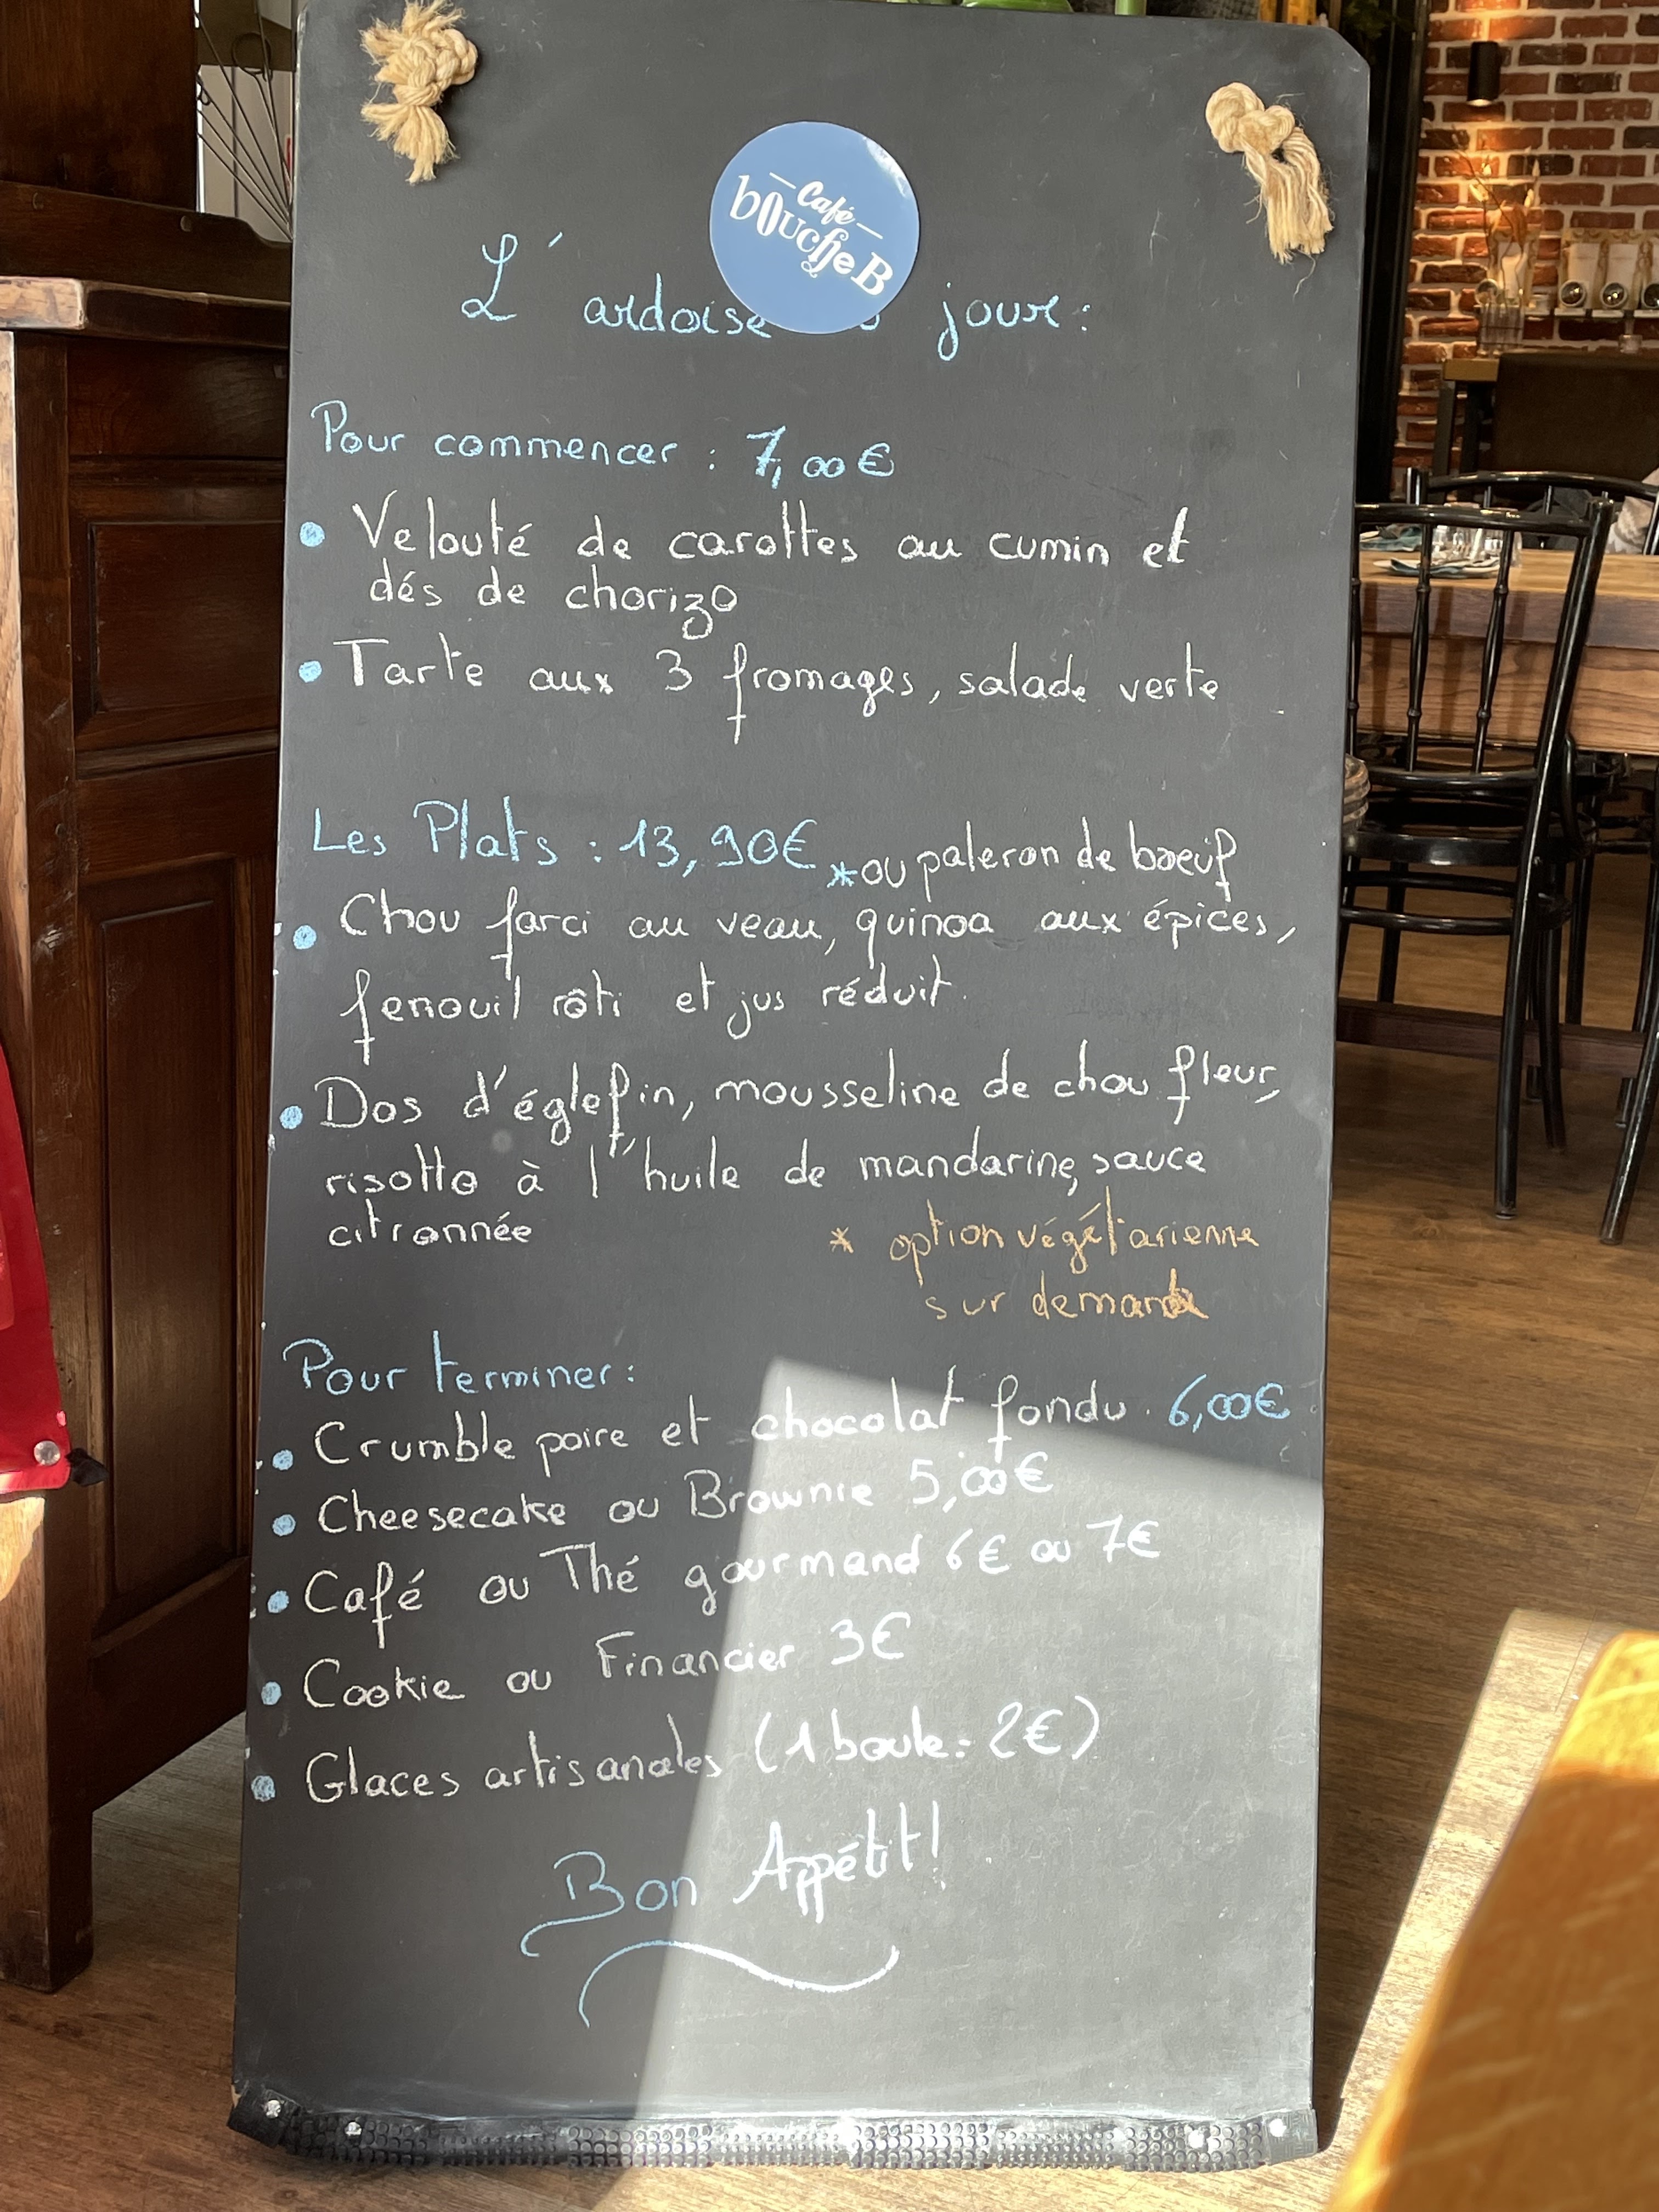 Café
bouche.B
L'ardoise jour:
Pour commencer : 7,00€
• Velouté de carottes au cumin et
dés de chorizo
• Tarte aux 3 fromages, salade verte
Les Plats : 13,90€ *ou paleron de boeuf
• Chou farci au veau, quinoa aux épices,
fenouil rôti et jus réduit.
• Dos d'églefin, mousseline de chou fleur,
risotto à l'huile de mandarine, sauce
citronnée
* option végétarienne
sur demande
Pour terminer:
• Crumble poire et chocolat fondu. 6,00€
• Cheesecake ou Brownie 5,00€
• Café ou Thé gourmand 6€ ou 7€
• Cookie ou Financier 3€
• Glaces artisanales (1 boule: 2€)
Bon Appétit!